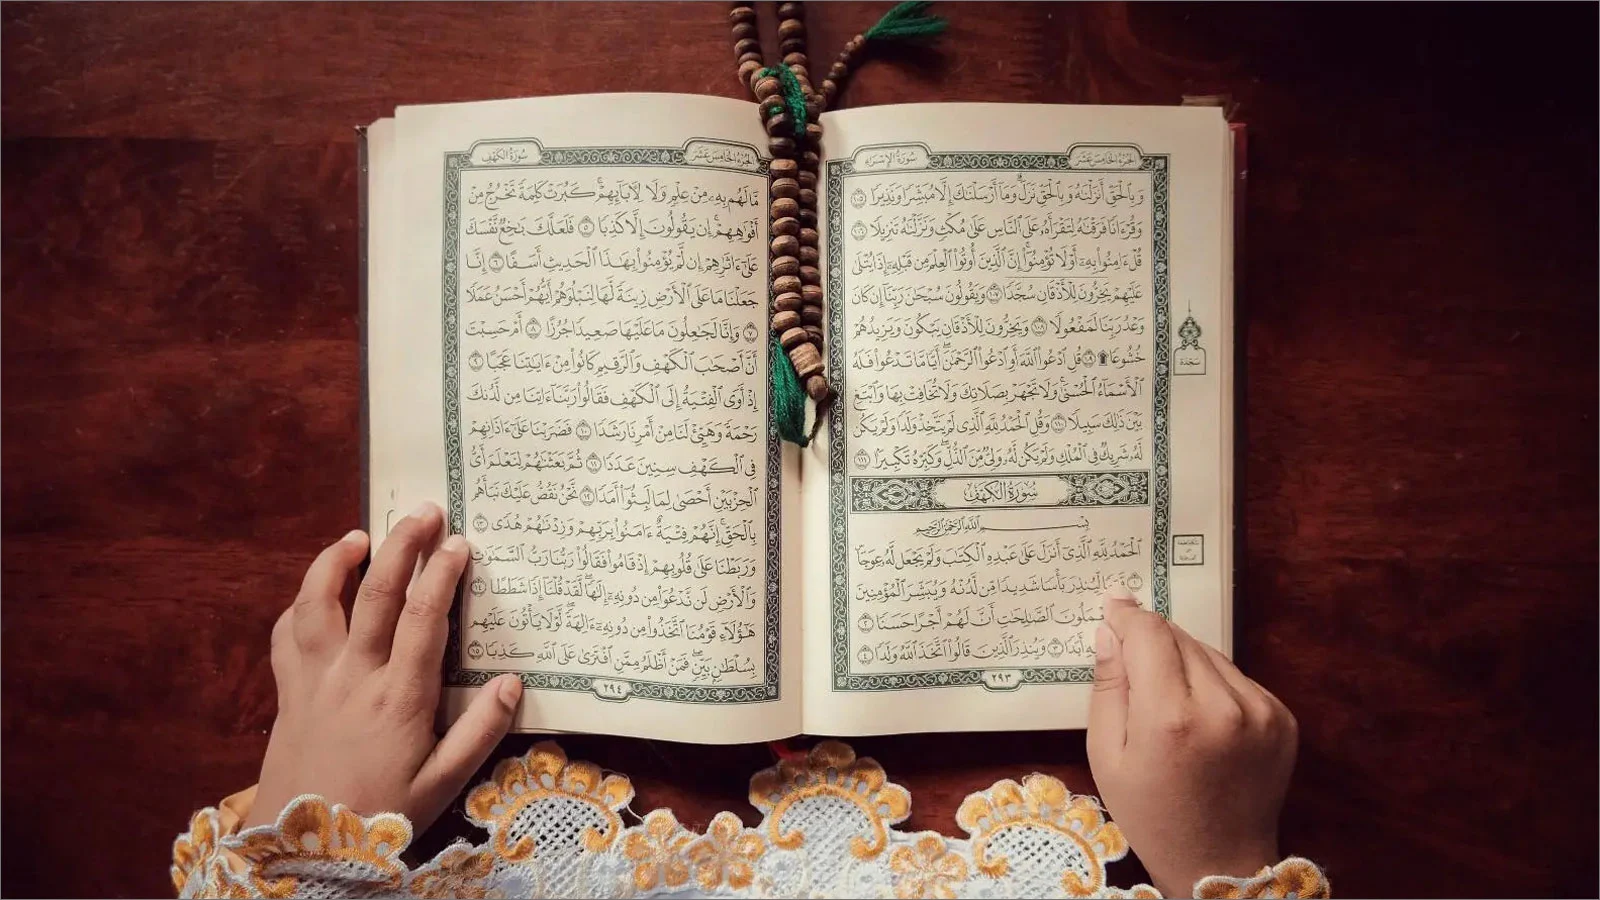 الجزء الخامس عشر
سورة الإسراء
وَبِٱلْحَقِّ أَنزَلْنَٰهُ وَبِٱلْحَقِّ نَزَلَ ۗ وَمَآ أَرْسَلْنَٰكَ إِلَّا مُبَشِّرًا وَنَذِيرًا ١٠٥
وَقُرْءَانًا فَرَقْنَٰهُ لِتَقْرَأَهُۥ عَلَى ٱلنَّاسِ عَلَىٰ مُكْثٍ وَنَزَّلْنَٰهُ تَنزِيلًا ١٠٦
قُلْ ءَامِنُوا۟ بِهِۦٓ أَوْ لَا تُؤْمِنُوٓا۟ ۚ إِنَّ ٱلَّذِينَ أُوتُوا۟ ٱلْعِلْمَ مِن قَبْلِهِۦٓ إِذَا يُتْلَىٰ
عَلَيْهِمْ يَخِرُّونَ لِلْأَذْقَانِ سُجَّدًا ١٠٧ وَيَقُولُونَ سُبْحَٰنَ رَبِّنَآ إِن كَانَ
وَعْدُ رَبِّنَا لَمَفْعُولًا ١٠٨ وَيَخِرُّونَ لِلْأَذْقَانِ يَبْكُونَ وَيَزِيدُهُمْ
خُشُوعًا ۩ ١٠٩ قُلِ ٱدْعُوا۟ ٱللَّهَ أَوِ ٱدْعُوا۟ ٱلرَّحْمَٰنَ ۖ أَيًّا مَّا تَدْعُوا۟ فَلَهُ
ٱلْأَسْمَآءُ ٱلْحُسْنَىٰ ۚ وَلَا تَجْهَرْ بِصَلَاتِكَ وَلَا تُخَافِتْ بِهَا وَٱبْتَغِ
بَيْنَ ذَٰلِكَ سَبِيلًا ١١٠ وَقُلِ ٱلْحَمْدُ لِلَّهِ ٱلَّذِى لَمْ يَتَّخِذْ وَلَدًا وَلَمْ يَكُن
لَّهُۥ شَرِيكٌ فِى ٱلْمُلْكِ وَلَمْ يَكُن لَّهُۥ وَلِىٌّ مِّنَ ٱلذُّلِّ ۖ وَكَبِّرْهُ تَكْبِيرًا ١١١
سجدة
سُورَةُ الكَهْفِ
بِسْمِ ٱللَّهِ ٱلرَّحْمَٰنِ ٱلرَّحِيمِ
ٱلْحَمْدُ لِلَّهِ ٱلَّذِىٓ أَنزَلَ عَلَىٰ عَبْدِهِ ٱلْكِتَٰبَ وَلَمْ يَجْعَل لَّهُۥ عِوَجَا
١ لِّيُنذِرَ بَأْسًا شَدِيدًا مِّن لَّدُنْهُ وَيُبَشِّرَ ٱلْمُؤْمِنِينَ
ٱلصَّٰلِحَٰتِ أَنَّ لَهُمْ أَجْرًا حَسَنًا ٢
أَبَدًا ٣ وَيُنذِرَ ٱلَّذِينَ قَالُوا۟ ٱتَّخَذَ ٱللَّهُ وَلَدًا ٤
٢٩٣
الجزء الخامس عشر
سورة الكهف
مَّا لَهُم بِهِۦ مِنْ عِلْمٍ وَلَا لِـَٔابَآئِهِمْ ۚ كَبُرَتْ كَلِمَةً تَخْرُجُ مِنْ
أَفْوَٰهِهِمْ ۚ إِن يَقُولُونَ إِلَّا كَذِبًا ٥ فَلَعَلَّكَ بَٰخِعٌ نَّفْسَكَ
عَلَىٰٓ ءَاثَٰرِهِمْ إِن لَّمْ يُؤْمِنُوا۟ بِهَٰذَا ٱلْحَدِيثِ أَسَفًا ٦ إِنَّا
جَعَلْنَا مَا عَلَى ٱلْأَرْضِ زِينَةً لَّهَا لِنَبْلُوَهُمْ أَيُّهُمْ أَحْسَنُ عَمَلًا
٧ وَإِنَّا لَجَٰعِلُونَ مَا عَلَيْهَا صَعِيدًا جُرُزًا ٨ أَمْ حَسِبْتَ
أَنَّ أَصْحَٰبَ ٱلْكَهْفِ وَٱلرَّقِيمِ كَانُوا۟ مِنْ ءَايَٰتِنَا عَجَبًا ٩
إِذْ أَوَى ٱلْفِتْيَةُ إِلَى ٱلْكَهْفِ فَقَالُوا۟ رَبَّنَآ ءَاتِنَا مِن لَّدُنكَ
رَحْمَةً وَهَيِّئْ لَنَا مِنْ أَمْرِنَا رَشَدًا ١٠ فَضَرَبْنَا عَلَىٰٓ ءَاذَانِهِمْ
فِى ٱلْكَهْفِ سِنِينَ عَدَدًا ١١ ثُمَّ بَعَثْنَٰهُمْ لِنَعْلَمَ أَىُّ
ٱلْحِزْبَيْنِ أَحْصَىٰ لِمَا لَبِثُوٓا۟ أَمَدًا ١٢ نَّحْنُ نَقُصُّ عَلَيْكَ نَبَأَهُم
بِٱلْحَقِّ ۚ إِنَّهُمْ فِتْيَةٌ ءَامَنُوا۟ بِرَبِّهِمْ وَزِدْنَٰهُمْ هُدًى ١٣
وَرَبَطْنَا عَلَىٰ قُلُوبِهِمْ إِذْ قَامُوا۟ فَقَالُوا۟ رَبُّنَا رَبُّ ٱلسَّمَٰوَٰتِ
وَٱلْأَرْضِ لَن نَّدْعُوَا۟ مِن دُونِهِۦٓ إِلَٰهًا ۖ لَّقَدْ قُلْنَآ إِذًا شَطَطًا ١٤
هَٰٓؤُلَآءِ قَوْمُنَا ٱتَّخَذُوا۟ مِن دُونِهِۦٓ ءَالِهَةً ۖ لَّوْلَا يَأْتُونَ عَلَيْهِم
بِسُلْطَٰنٍۭ بَيِّنٍ ۖ فَمَنْ أَظْلَمُ مِمَّنِ ٱفْتَرَىٰ عَلَى ٱللَّهِ كَذِبًا ١٥
٢٩٤